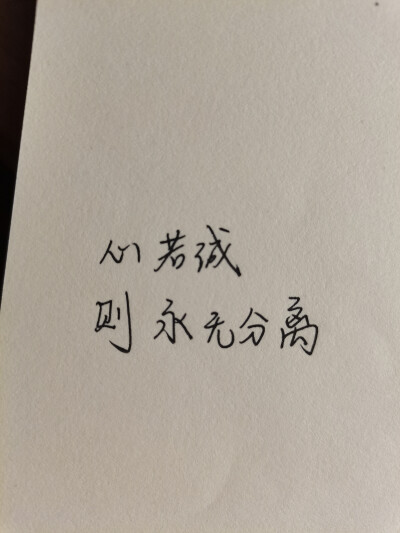 心若诚
则永无分离